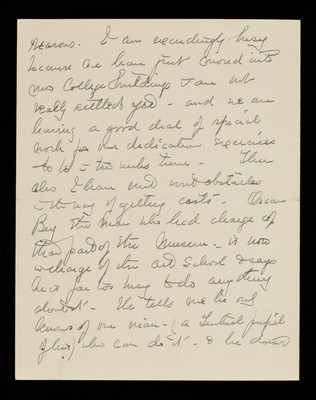 reasons. I am exceedingly busy
because we have just moved into
new College buildings & am not
really settled yet - and we are
having a good deal of special
work for our dedication exercises
- to be in two weeks time - Then
also I have met with obstacles
in the way of getting casts - Oscan
Bey the man who had charge of
that part of the Museum - is now
in charge of the art School & says
he is far too busy to do anything
about it - He tells me he only
knows of one man - (a Turkish pupil
of his) who can do it - & he doesn't